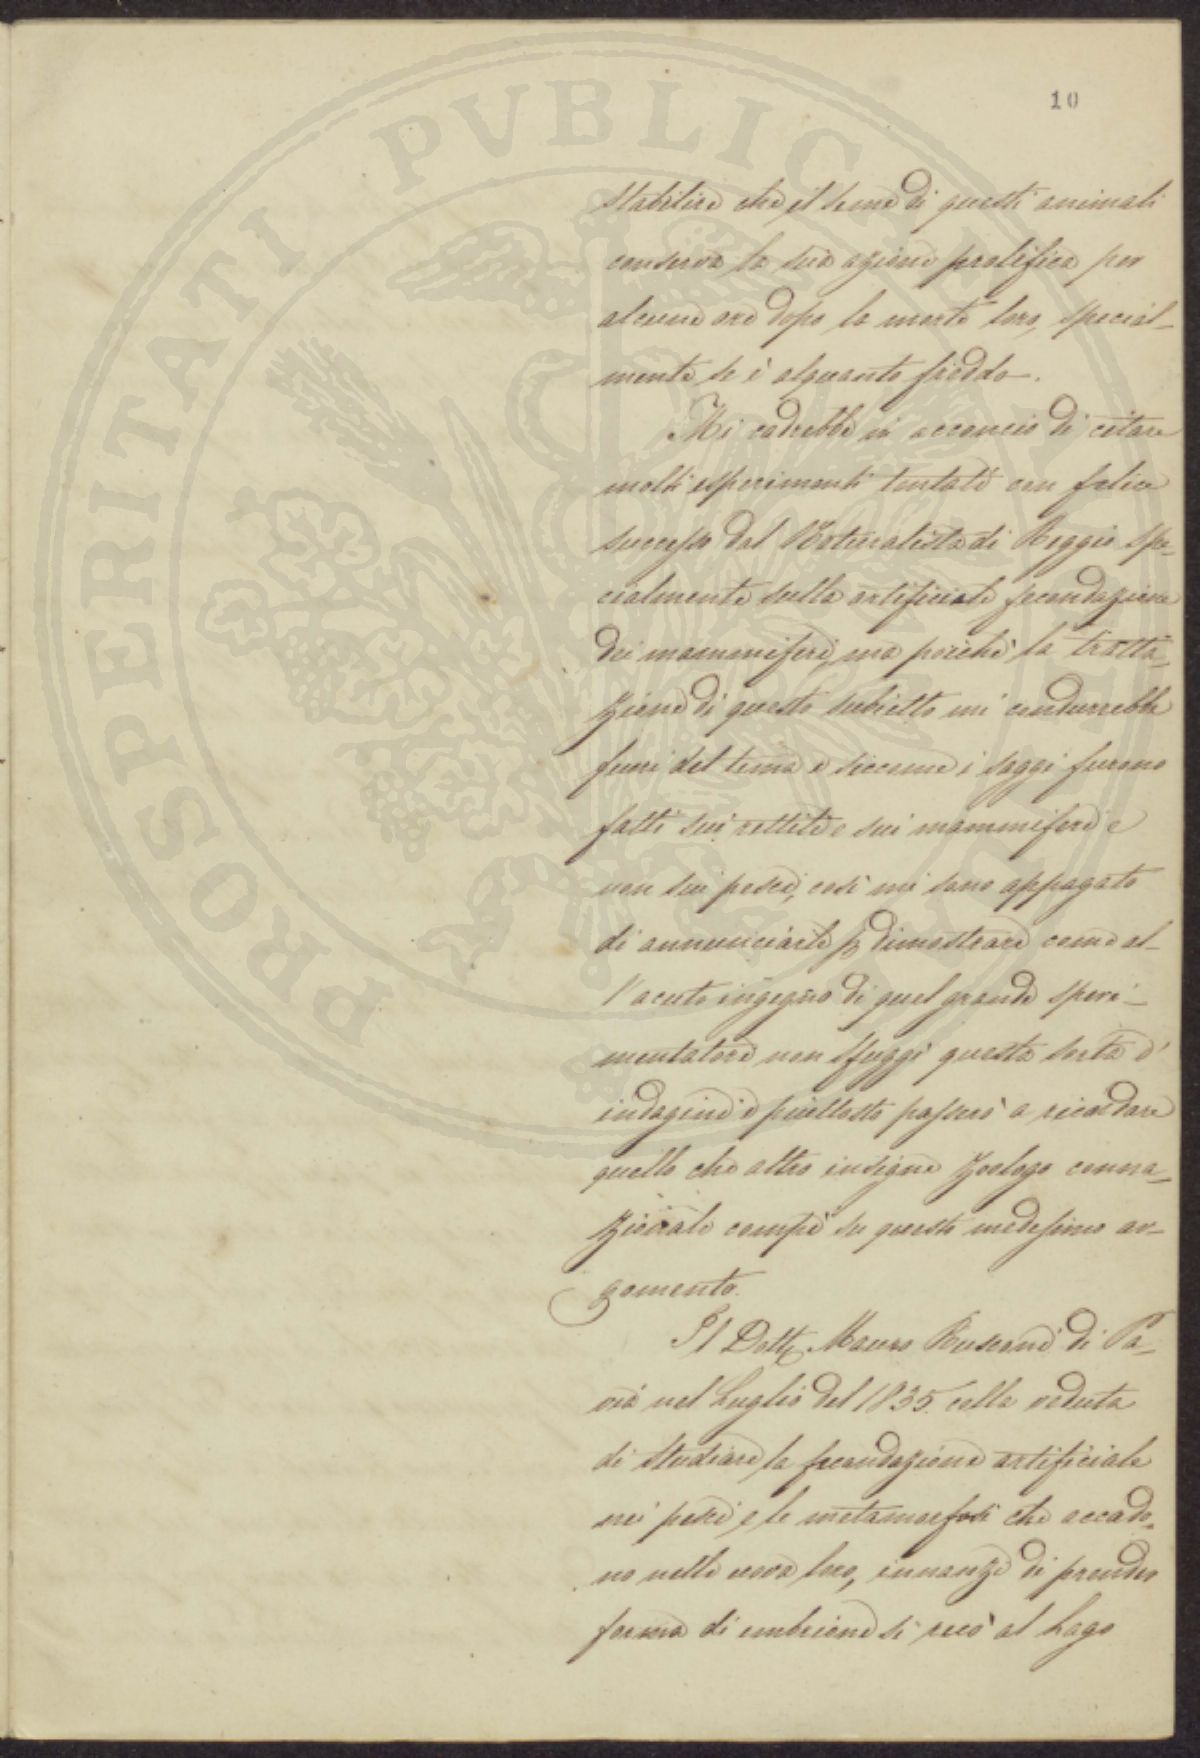 PROSPERITATI PUBLICAE
10
stabilire che il seme di questi animali
conserva la sua azione prolifica per
alcune ore dopo la morte loro, special-
mente se è alquanto freddo.
Mi cadrebbe in acconcio di citare
molti esperimenti tentati con felice
successo dal Naturalista di Reggio spe-
cialmente sulla artificiale fecondazione
dei mammiferi, ma poichè la tratta-
zione di questo subietto mi condurrebbe
fuori del tema e siccome i saggi furono
fatti sui rettili e sui mammiferi e
non sui pesci, così mi sono appagato
di annunciarli p dimostrare come al-
l'acuto ingegno di quel grande speri-
mentatore non sfuggì questa sorta d'
indagini e piuttosto passerò a ricordare
quello che altro insigne Zoologo conna-
zionale compì su questo medesimo ar-
gomento.
Il Dott. Mauro Rusconi di Pa-
via nel Luglio del 1835. colla veduta
di studiare la fecondazione artificiale
nei pesci e le metamorfosi che accado-
no nelle uova loro, innanzi di prender
forma di embrione si recò al Lago